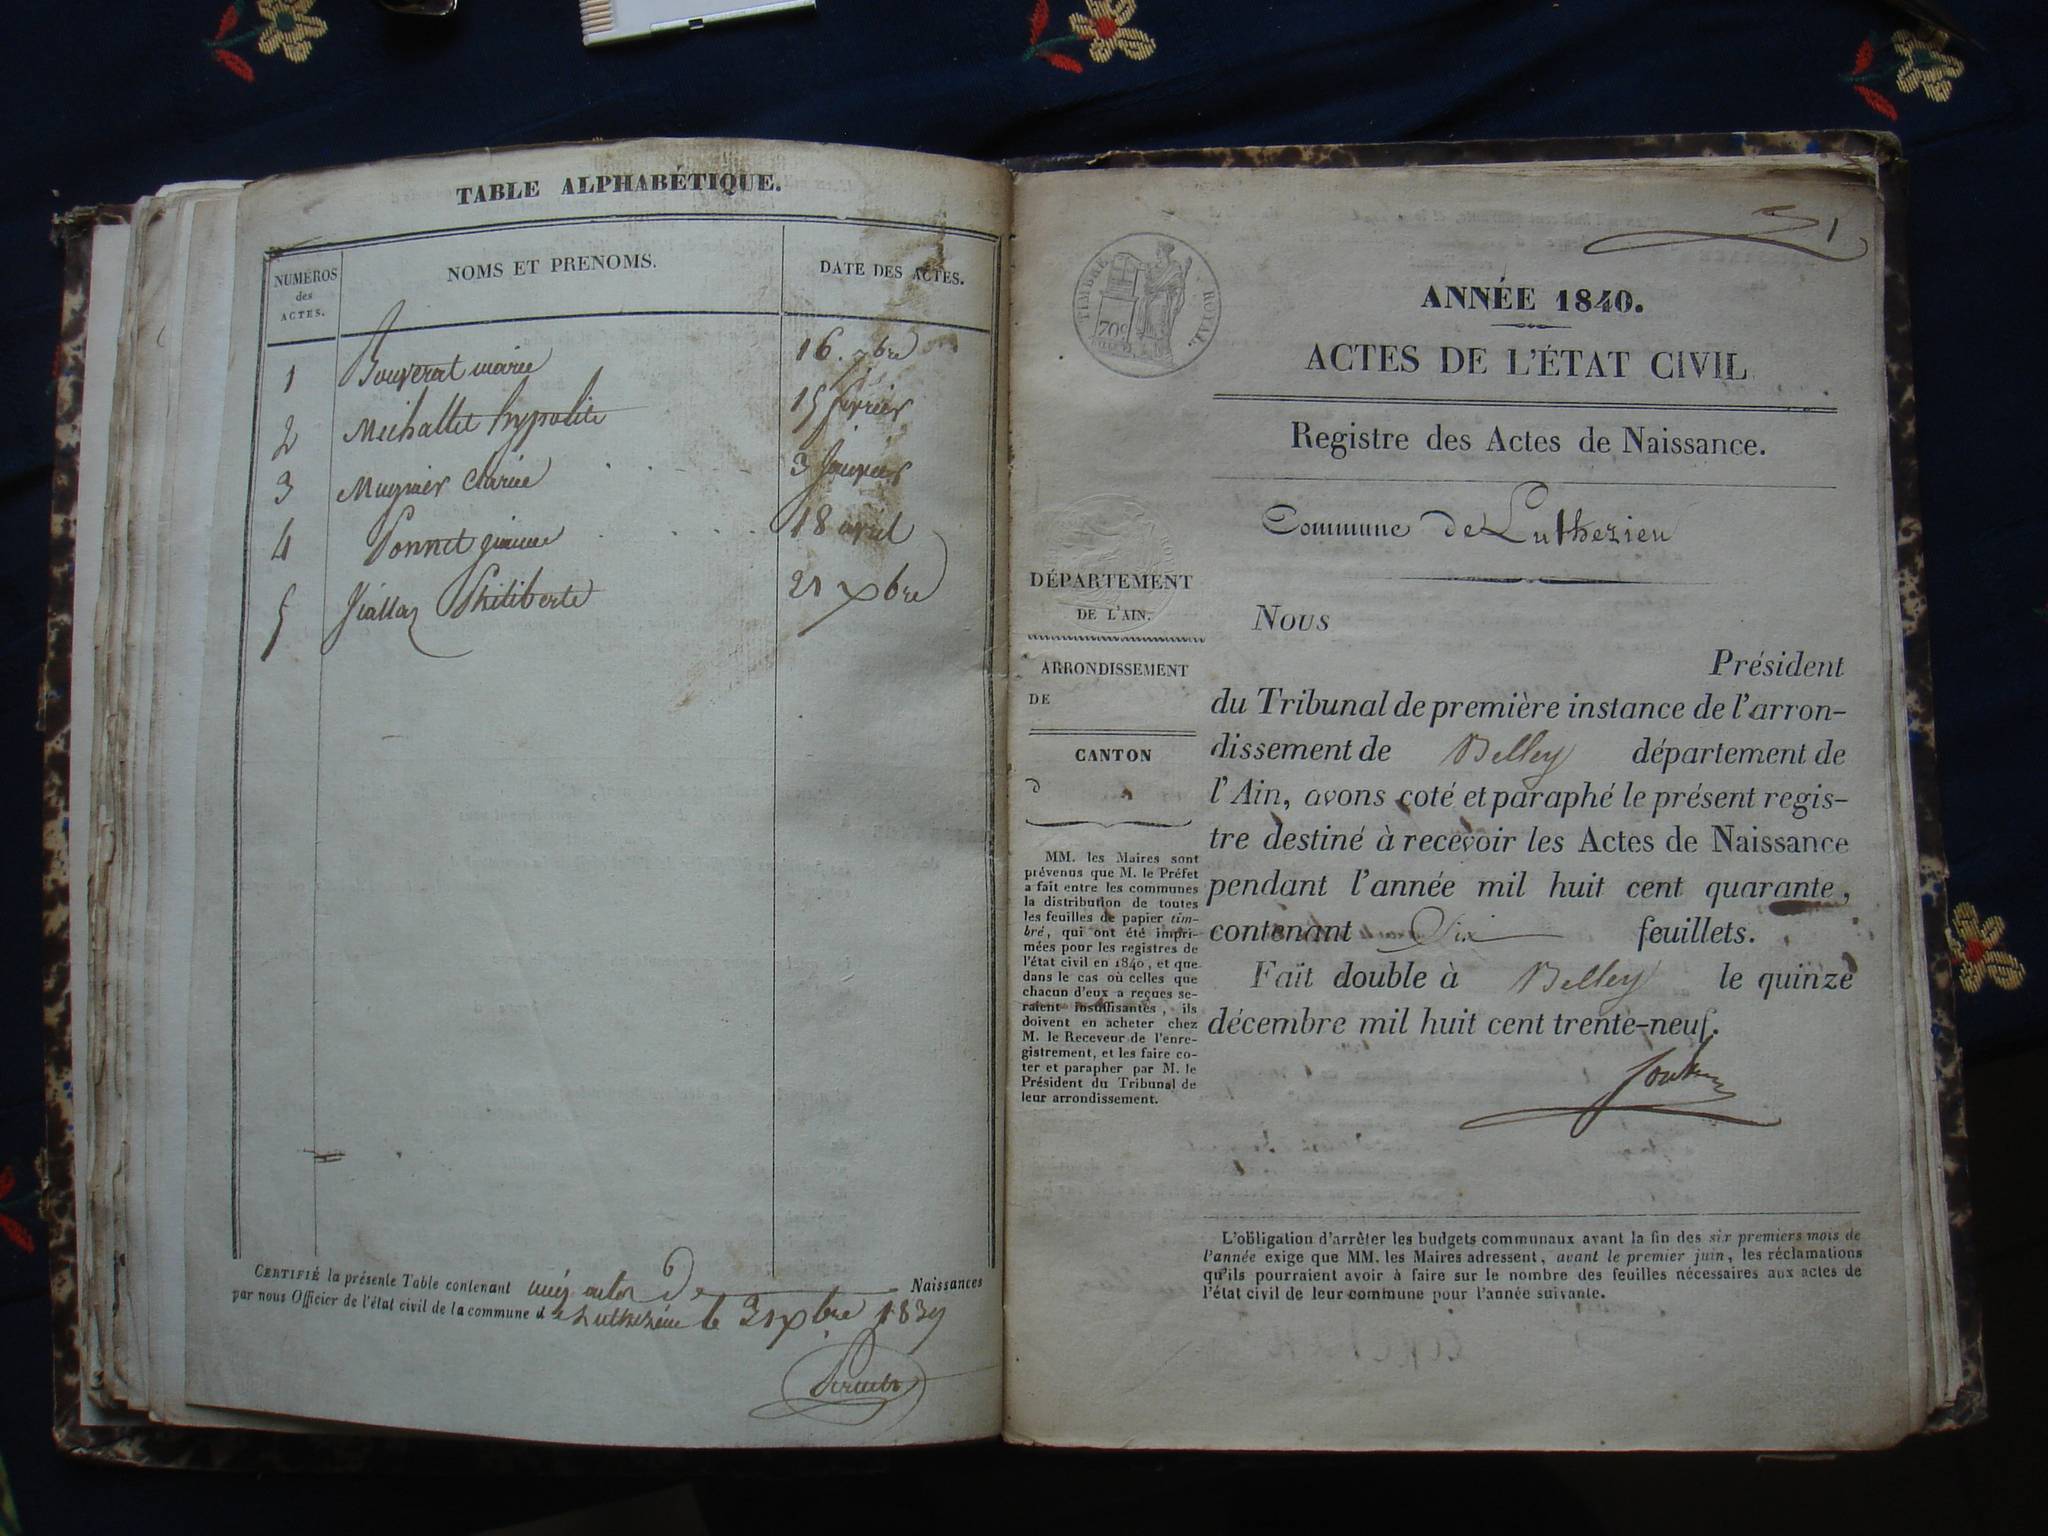 TABLE ALPHABÉTIQUE.
NUMÉROS des ACTES.
NOMS ET PRENOMS.
DATE DES ACTES.
1 Bouverat marie 16. 7bre
2 Michallet hypolite 15 février
3 Mugnier Clarice 3 Janvier
4 Ponnet 18 avril
5 Philiberte 21 xbre
CERTIFIÉ la présente Table contenant cinq actes De Naissances
par nous Officier de l'état civil de la commune de Luthezieu le 31 xbre 1839
1
TIMBRE ROYAL
70c
ANNÉE 1840.
ACTES DE L'ÉTAT CIVIL
Registre des Actes de Naissance.
Commune de Luthezieu
DÉPARTEMENT
DE L'AIN.
ARRONDISSEMENT
DE
CANTON
d
MM. les Maires sont
prévenus que M. le Préfet
a fait entre les communes
la distribution de toutes
les feuilles de papier tim-
bré, qui ont été impri-
mées pour les registres de
l'état civil en 1840, et que
dans le cas où celles que
chacun d'eux a reçues se-
raient insuffisantes, ils
doivent en acheter chez
M. le Receveur de l'enre-
gistrement, et les faire co-
ter et parapher par M. le
Président du Tribunal de
leur arrondissement.
Nous
Président
du Tribunal de première instance de l'arron-
dissement de Belley département de
l'Ain, avons coté et paraphé le présent regis-
tre destiné à recevoir les Actes de Naissance
pendant l'année mil huit cent quarante,
contenant Six feuillets.
Fait double à Belley le quinze
décembre mil huit cent trente-neuf.
L'obligation d'arrêter les budgets communaux avant la fin des six premiers mois de
l'année exige que MM. les Maires adressent, avant le premier juin, les réclamations
qu'ils pourraient avoir à faire sur le nombre des feuilles nécessaires aux actes de
l'état civil de leur commune pour l'année suivante.